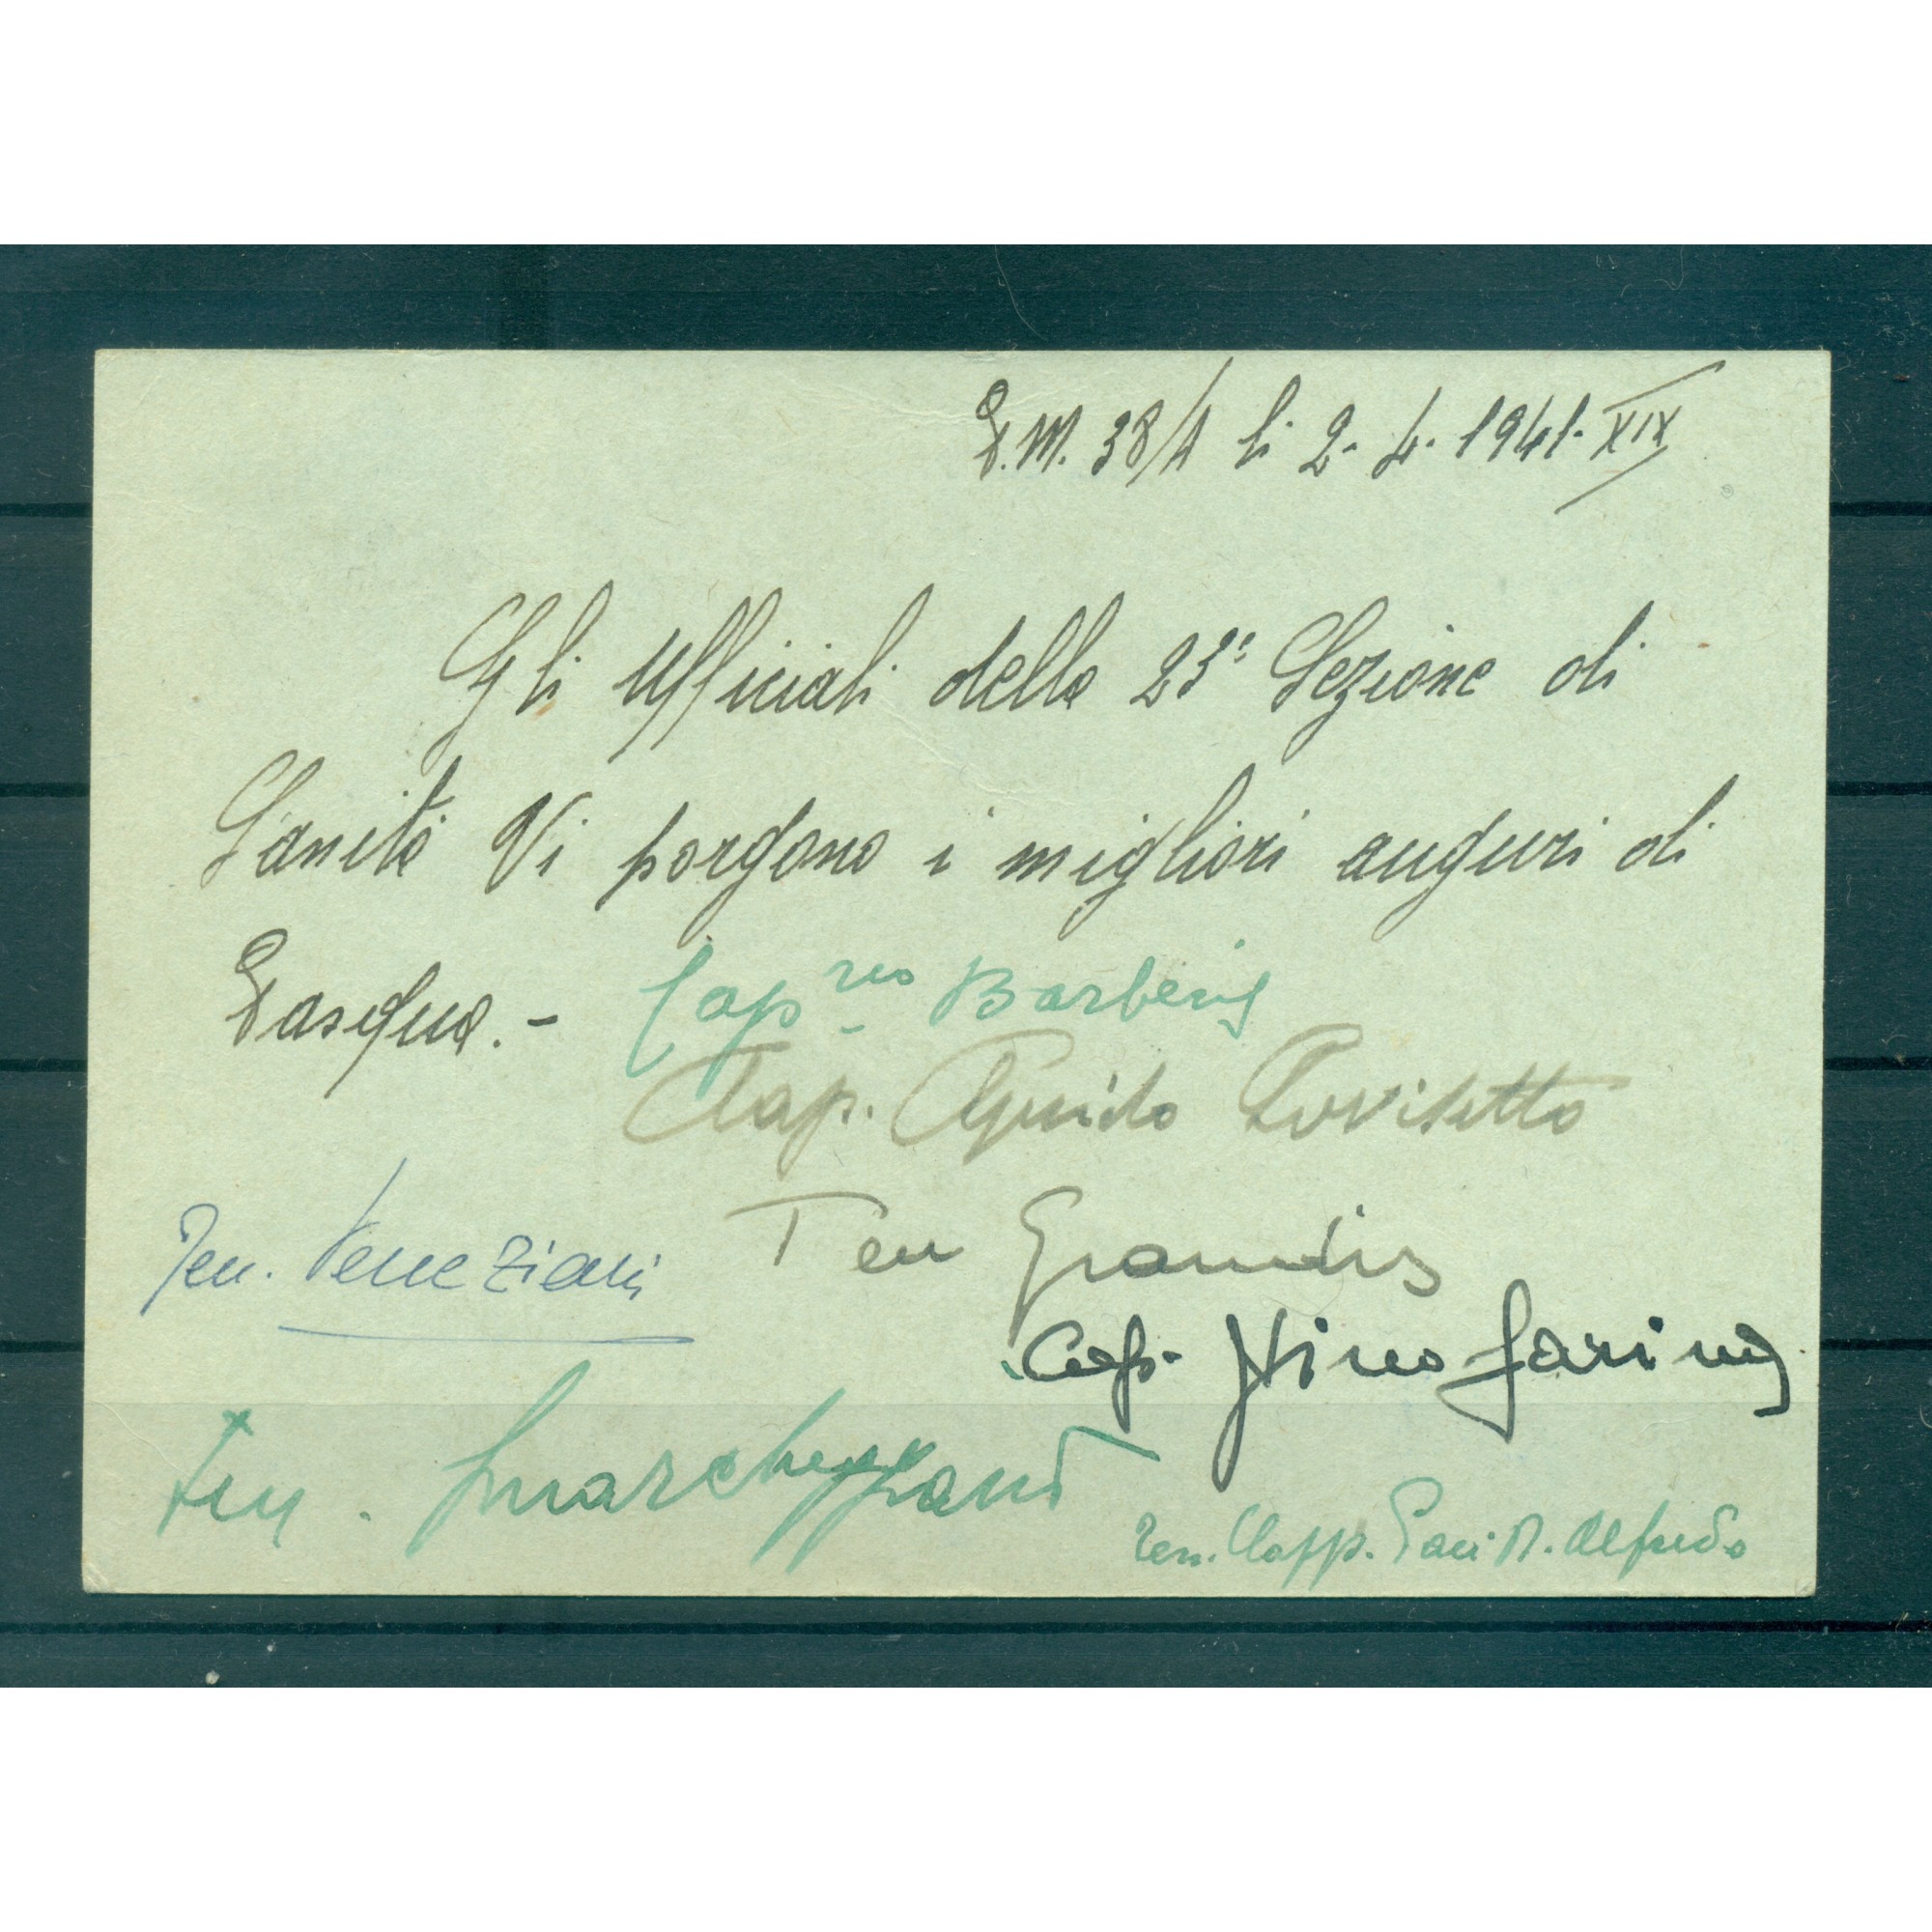 P.M. 38/A li 2-4-1941-XIX
Gli Ufficiali della 23ª Sezione di
Sanità Vi porgono i migliori auguri di
Pasqua.-
Cap. Barberis
Cap. Guido
Ten. Veneziani
Ten Grandis
Cap. Nino Farina
Ten.
Ten. Capp. Paci D. Alfredo